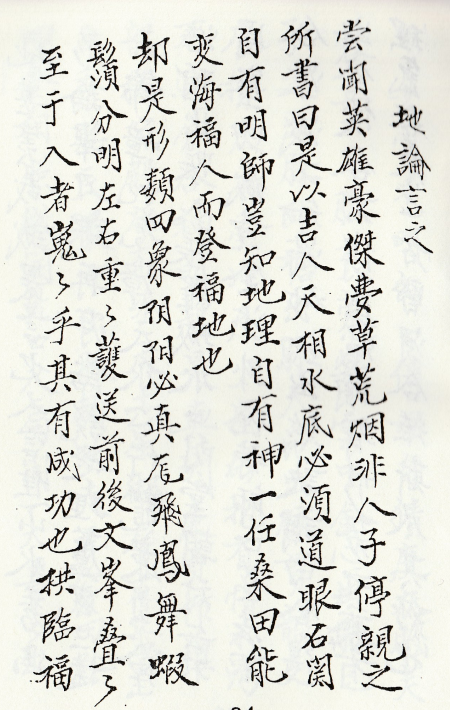 地論言之
尝闻英雄豪傑虁草荒烟非人子停親之
所書曰是以吉人天相水底必須道眼石関
自有明師豈知地理自有神一任桑田能
变海福人而登福地也
却是形𩔖四象阴阳必真厐飛鳳舞蝦
鬚八分明左右重々護送前後文峯叠々
至于入者嵬々乎其有成功也拱臨福